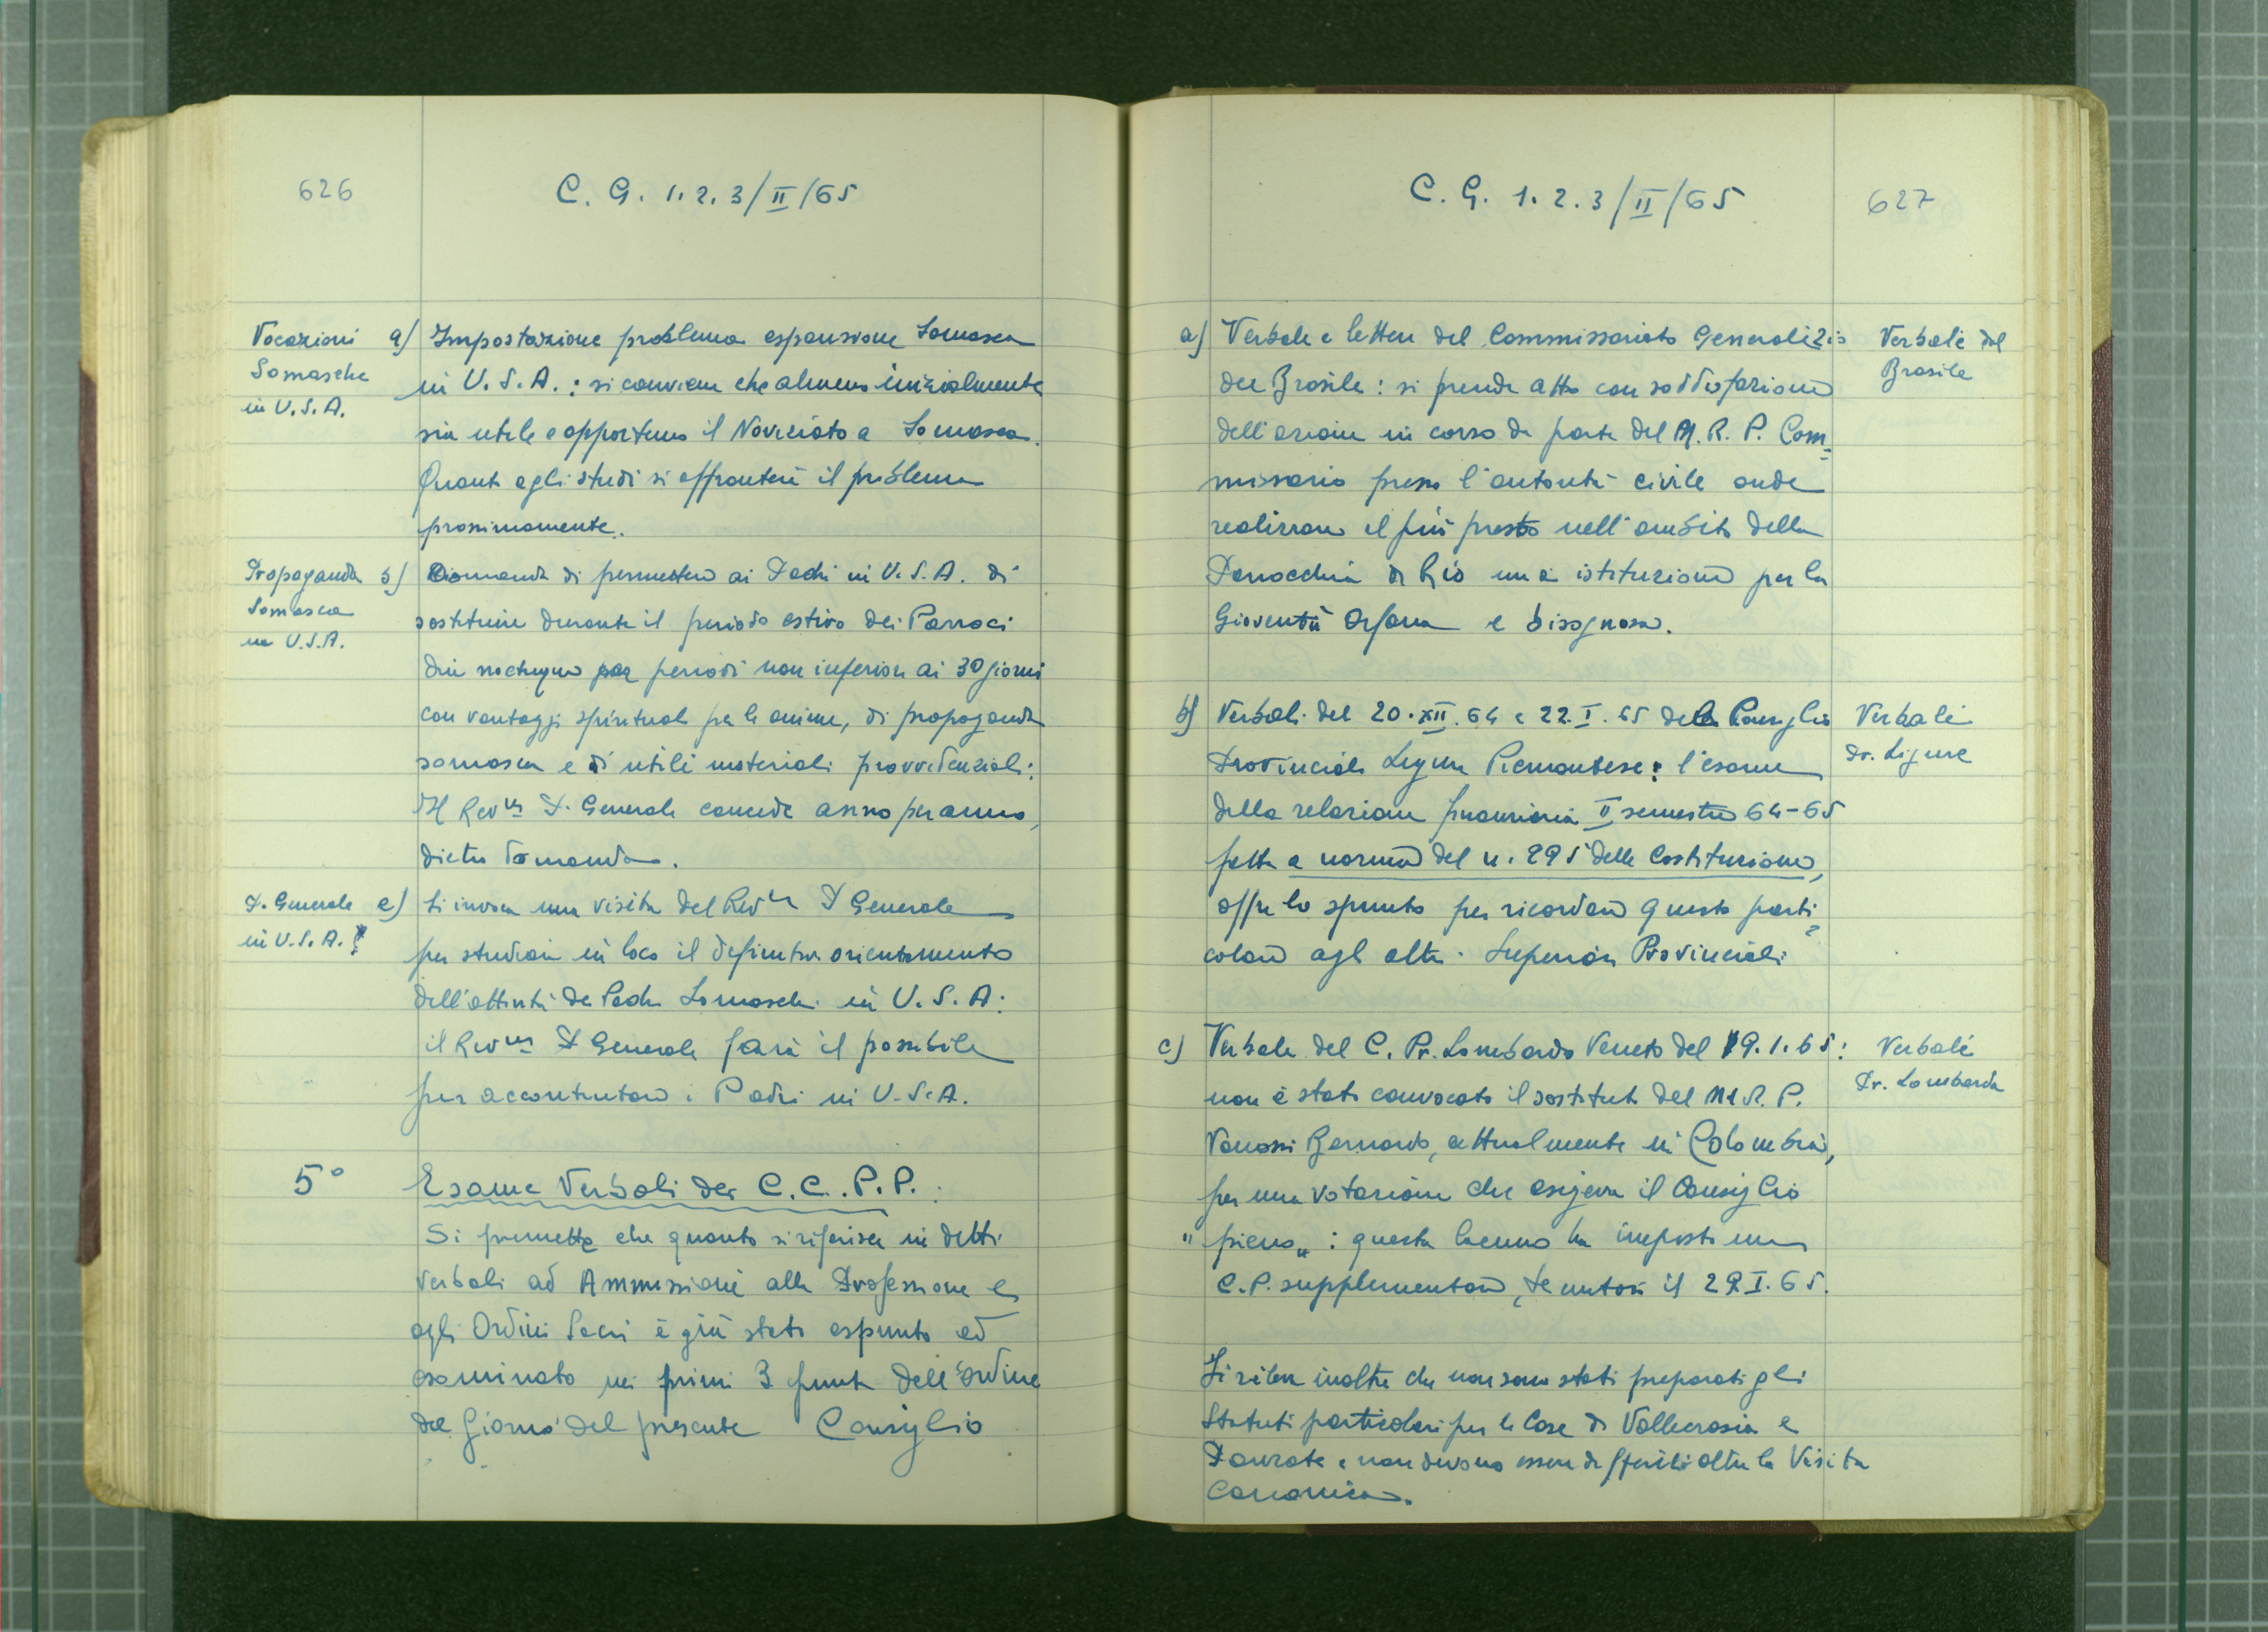 626
C. G. 1. 2. 3/II/65
Vocazioni
Somasche
in U.S.A.
a) Impostazione problema espansione Somasca
in U.S.A.: si conviene che almeno inizialmente
sia utile e opportuno il Noviziato a Somasca.
Quanto agli studi si affronterà il problema
prossimamente.
Propaganda
Somasca
in U.S.A.
b) Domanda di permettere ai Padri in U.S.A. di
sostituire durante il periodo estivo dei Parroci
per periodi non inferiori ai 30 giorni
con vantaggi spirituali per le anime, di propaganda
somasca e di utili materiali provvidenziali:
Il Rev.mo P. Generale concede anno per anno,
dietro domanda.
P. Generale
in U.S.A.
c) Si invoca una visita del Rev.mo P. Generale
per studiare in loco il definitivo orientamento
dell'attività dei Padri Somaschi in U.S.A.:
il Rev.mo P. Generale farà il possibile
per accontentare i Padri in U.S.A.
5°
Esame Verbali dei C.C.P.P.:
Si premette che quanto si riferisce in detti
Verbali ad Ammissioni alla Professione e
agli Ordini Sacri è già stato espunto ed
esaminato nei primi 3 punti dell'ordine
del Giorno del presente Consiglio
C. G. 1. 2. 3/II/65
627
a) Verbale e lettere del Commissariato Generalizio
del Brasile: si prende atto con soddisfazione
dell'azione in corso da parte del M. R. P. Com=
missario presso l'autorità civile onde
realizzare il più presto nell'ambito della
Parrocchia di Rio una istituzione per la
Gioventù Orfana e bisognosa.
Verbali del
Brasile
b) Verbali del 20.XII.64 e 22.I.65 del Consiglio
Provinciale Ligure Piemontese: l'esame
della relazione finanziaria II semestre 64-65
fatta a norma del n. 295 delle Costituzioni,
offre lo spunto per ricordare questo parti=
colare agli altri Superiori Provinciali
Verbali
Pr. Ligure
c) Verbale del C. Pr. Lombardo Veneto del 19.1.65:
non è stato convocato il sostituto del M. R. P.
Vanossi Bernardo, attualmente in Colombia,
per una votazione che esigeva il Consiglio
"pieno": questa lacuna ha imposto un
C.P. supplementare, tenutosi il 29.I.65.
Verbali
Pr. Lombarda
Si rileva inoltre che non sono stati preparati gli
Statuti particolari per le Case di Vallecrosia e
e non devono essere differiti oltre la Visita
Canonica.